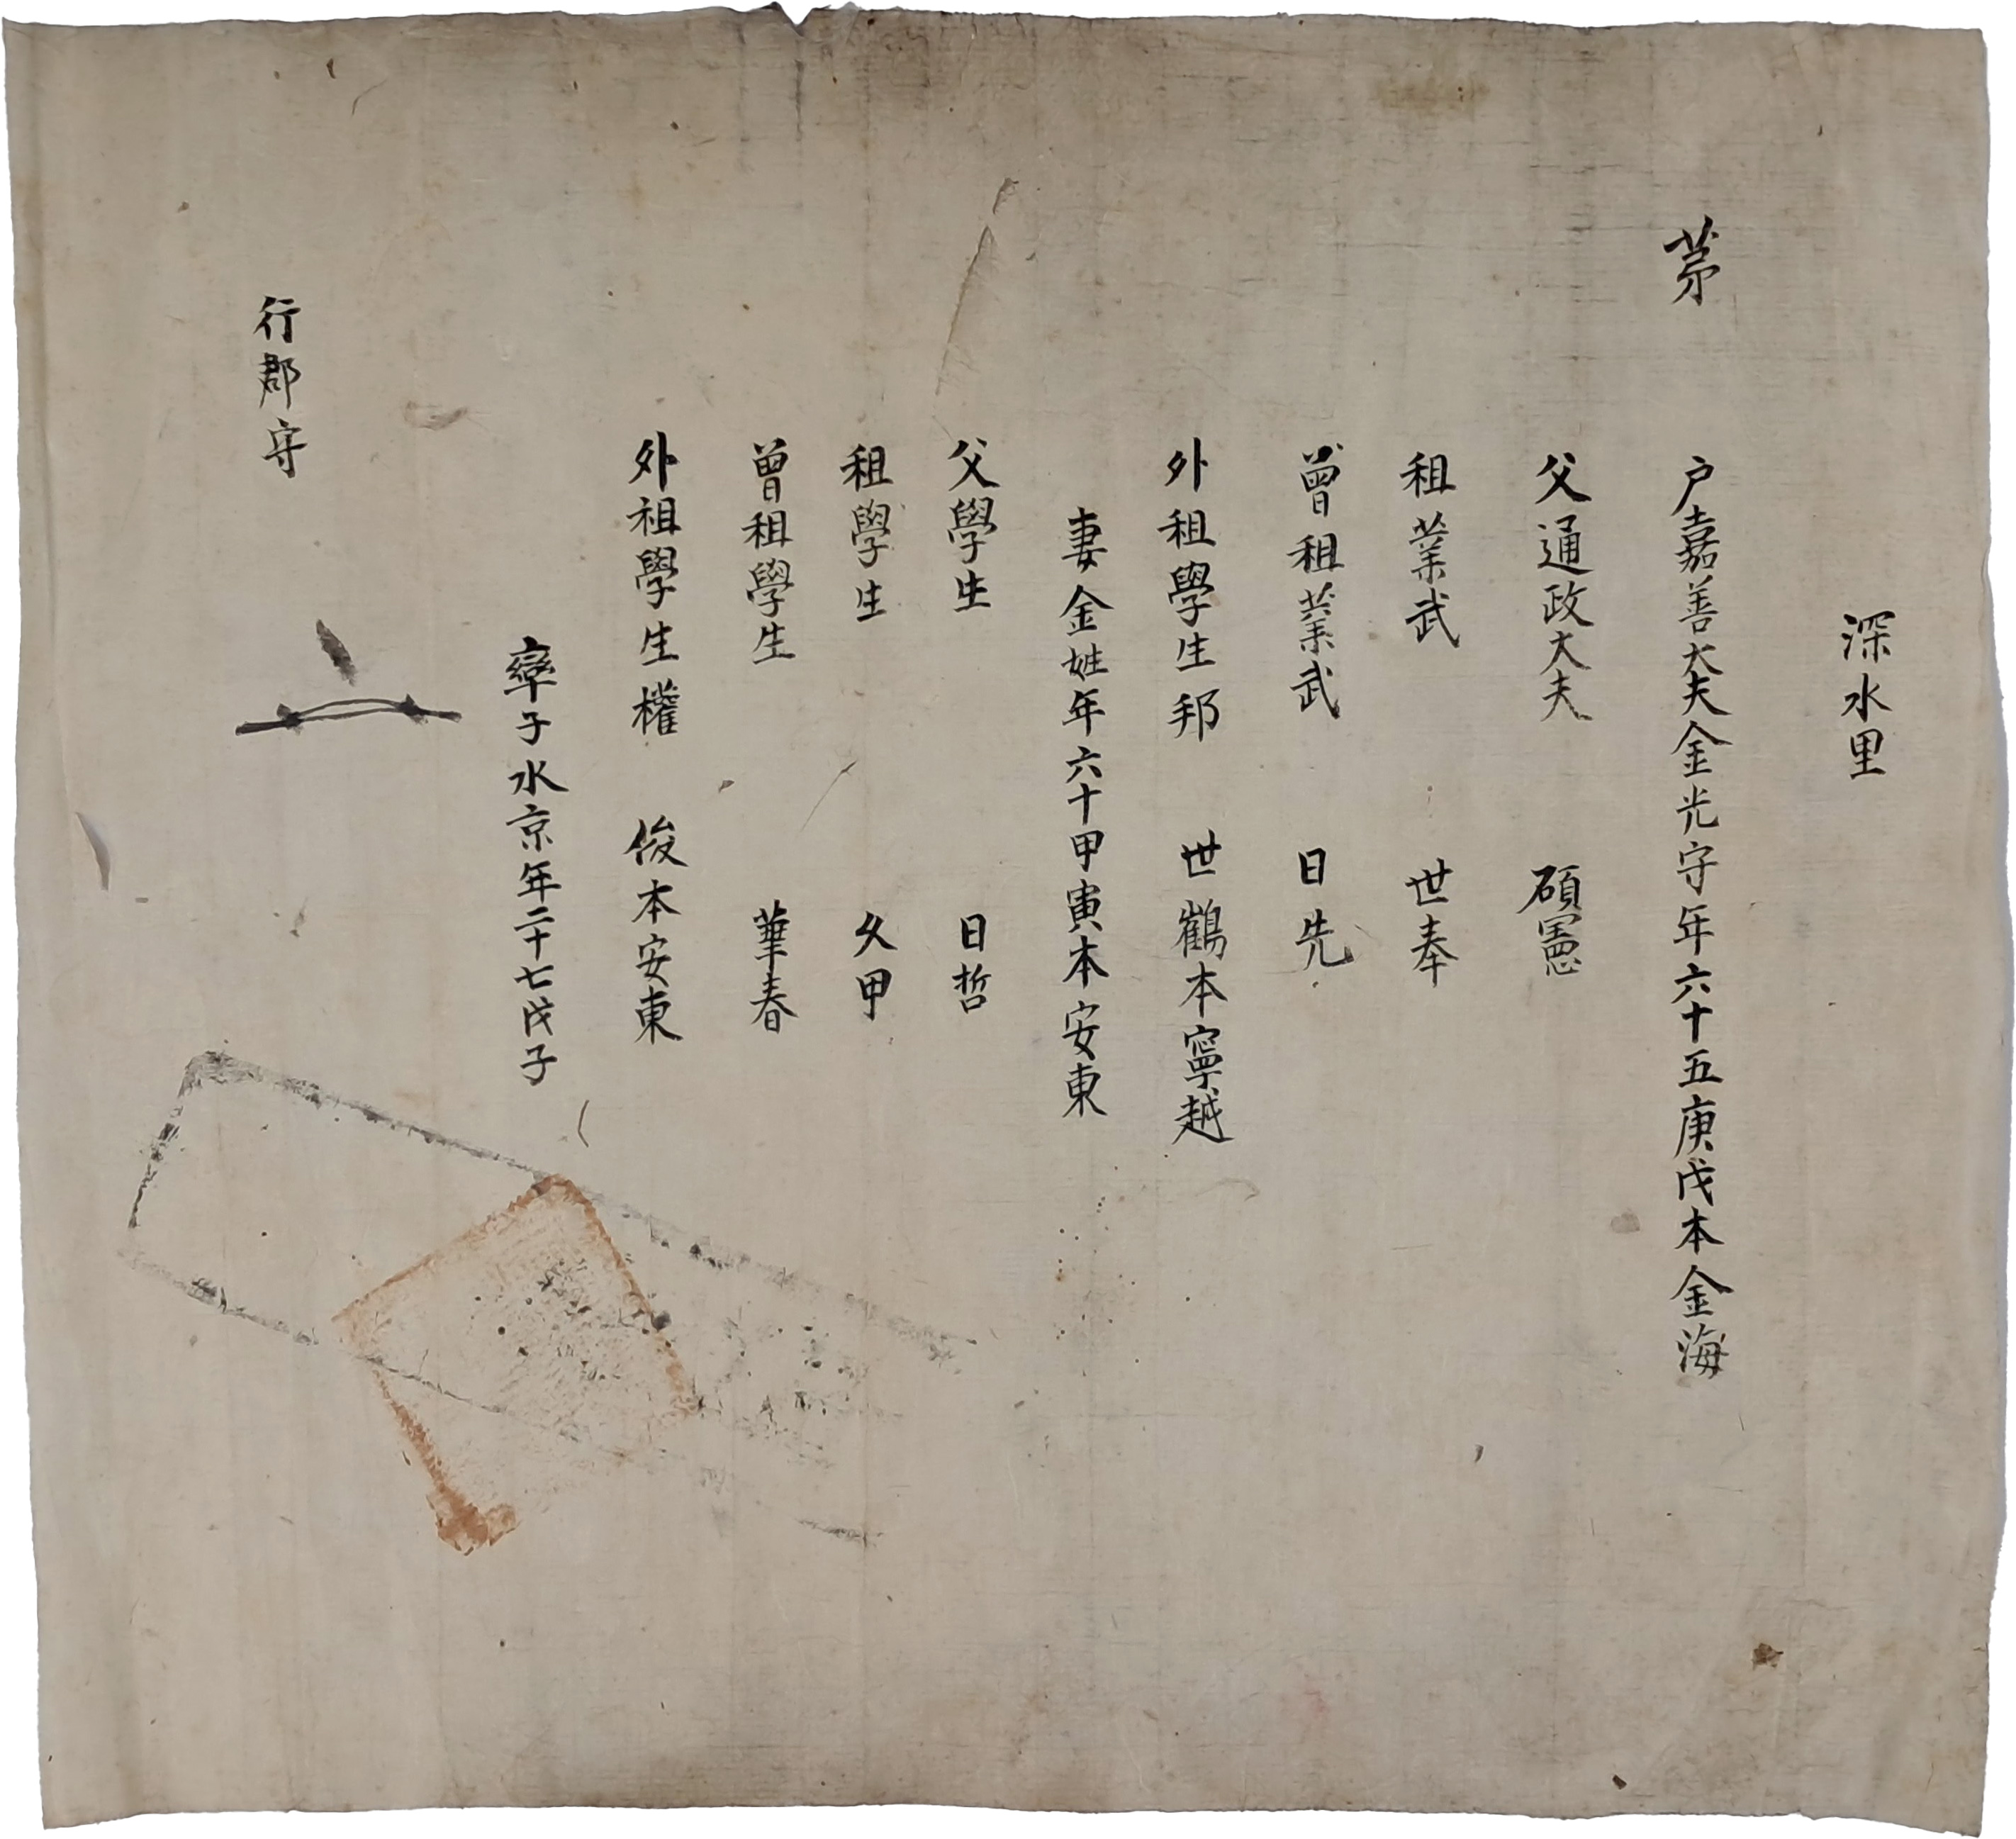 深水里
茅
户嘉善大夫金光守年六十五庚戌本金海
父通政大夫 碩憲
祖業武 世奉
曾祖業武 日先
外祖學生邦 世鶴本寧越
妻金姓年六十甲寅本安東
父學生 日哲
祖學生 久甲
曾祖學生 華春
外祖學生權 俊本安東
率子水京年二十七戊子
行郡守